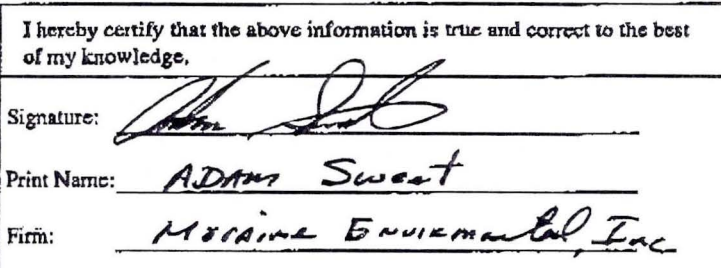 I hereby certify that the above information is true and correct to the best
of my knowledge,
Signature:
Print Name: ADAM Sweet
Firm: Moraine Envirmental, Inc